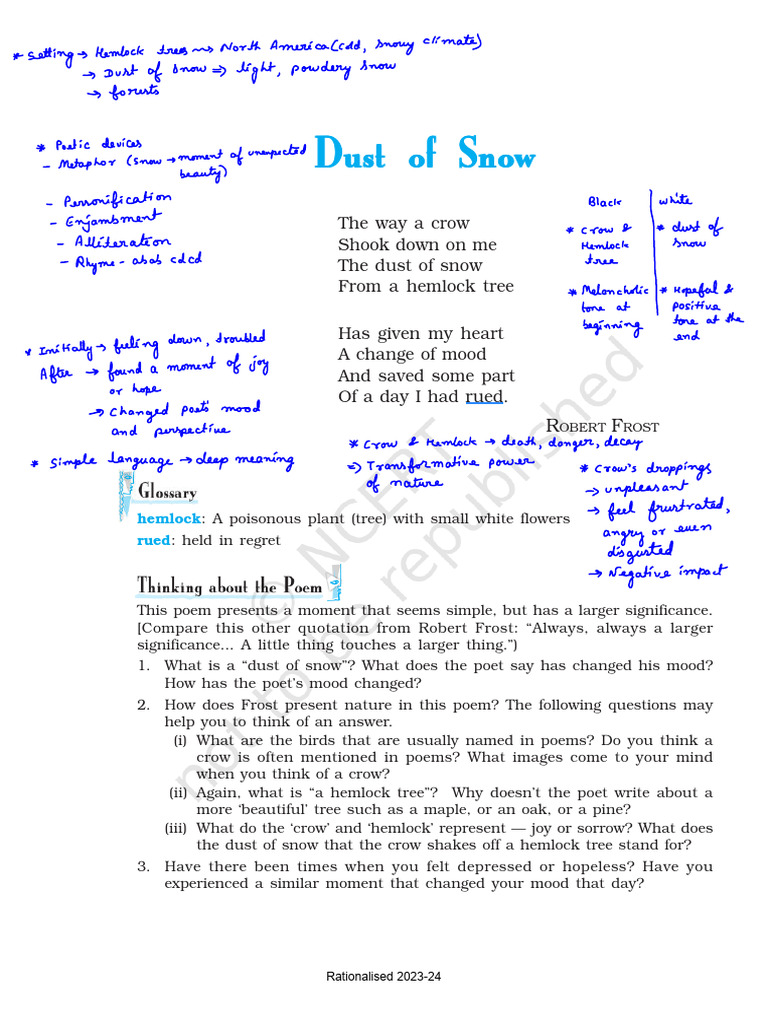 * Setting → Hemlock trees ⇝ North America (cold, snowy climate)
→ Dust of Snow ⇒ light, powdery snow
→ forests
* Poetic devices
- Metaphor (Snow → moment of unexpected
beauty)
- Personification
- Enjambment
- Alliteration
- Rhyme - abab cdcd
Dust of Snow
The way a crow
Shook down on me
The dust of snow
From a hemlock tree
Has given my heart
A change of mood
And saved some part
Of a day I had rued.
ROBERT FROST
Black | white
* Crow & | * dust of
Hemlock | snow
tree
* Melancholic | * Hopeful &
tone at | positive
beginning | tone at the
end
* Initially → feeling down, troubled
After → found a moment of joy
or hope
→ Changed poet's mood
and perspective
* Simple language → deep meaning
* Crow & Hemlock → death, danger, decay
⇒ Transformative power
of nature
* Crow's droppings
→ unpleasant
→ feel frustrated,
angry or even
disgusted
→ Negative impact
Glossary
hemlock: A poisonous plant (tree) with small white flowers
rued: held in regret
Thinking about the Poem
This poem presents a moment that seems simple, but has a larger significance.
[Compare this other quotation from Robert Frost: “Always, always a larger
significance... A little thing touches a larger thing.”)
1. What is a “dust of snow”? What does the poet say has changed his mood?
How has the poet’s mood changed?
2. How does Frost present nature in this poem? The following questions may
help you to think of an answer.
(i) What are the birds that are usually named in poems? Do you think a
crow is often mentioned in poems? What images come to your mind
when you think of a crow?
(ii) Again, what is “a hemlock tree”? Why doesn’t the poet write about a
more ‘beautiful’ tree such as a maple, or an oak, or a pine?
(iii) What do the ‘crow’ and ‘hemlock’ represent — joy or sorrow? What does
the dust of snow that the crow shakes off a hemlock tree stand for?
3. Have there been times when you felt depressed or hopeless? Have you
experienced a similar moment that changed your mood that day?
© NCERT
not to be republished
Rationalised 2023-24